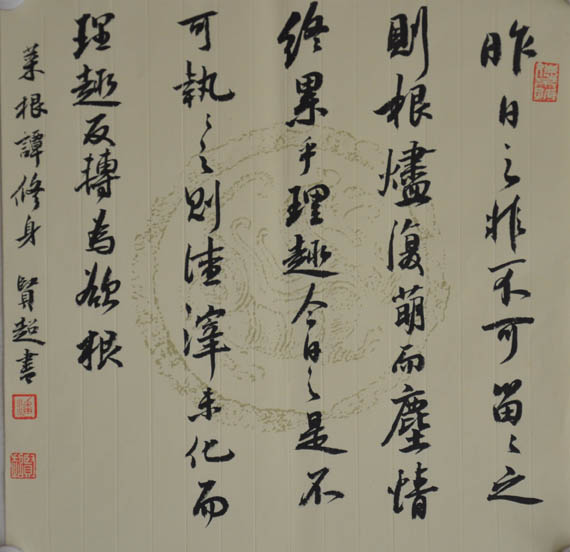 昨日之非不可留留之
則根燼復萌而塵情
終累乎理趣今日之是不
可執執之則渣滓未化而
理趣反轉為欲根
菜根譚修身 賢超書